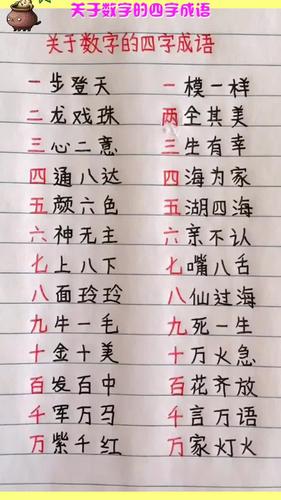 关于数字的四字成语
关于数字的四字成语
一步登天 一模一样
二龙戏珠 两全其美
三心二意 三生有幸
四通八达 四海为家
五颜六色 五湖四海
六神无主 六亲不认
七上八下 七嘴八舌
八面玲玲 八仙过海
九牛一毛 九死一生
十金十美 十万火急
百发百中 百花齐放
千军万马 千言万语
万紫千红 万家灯火